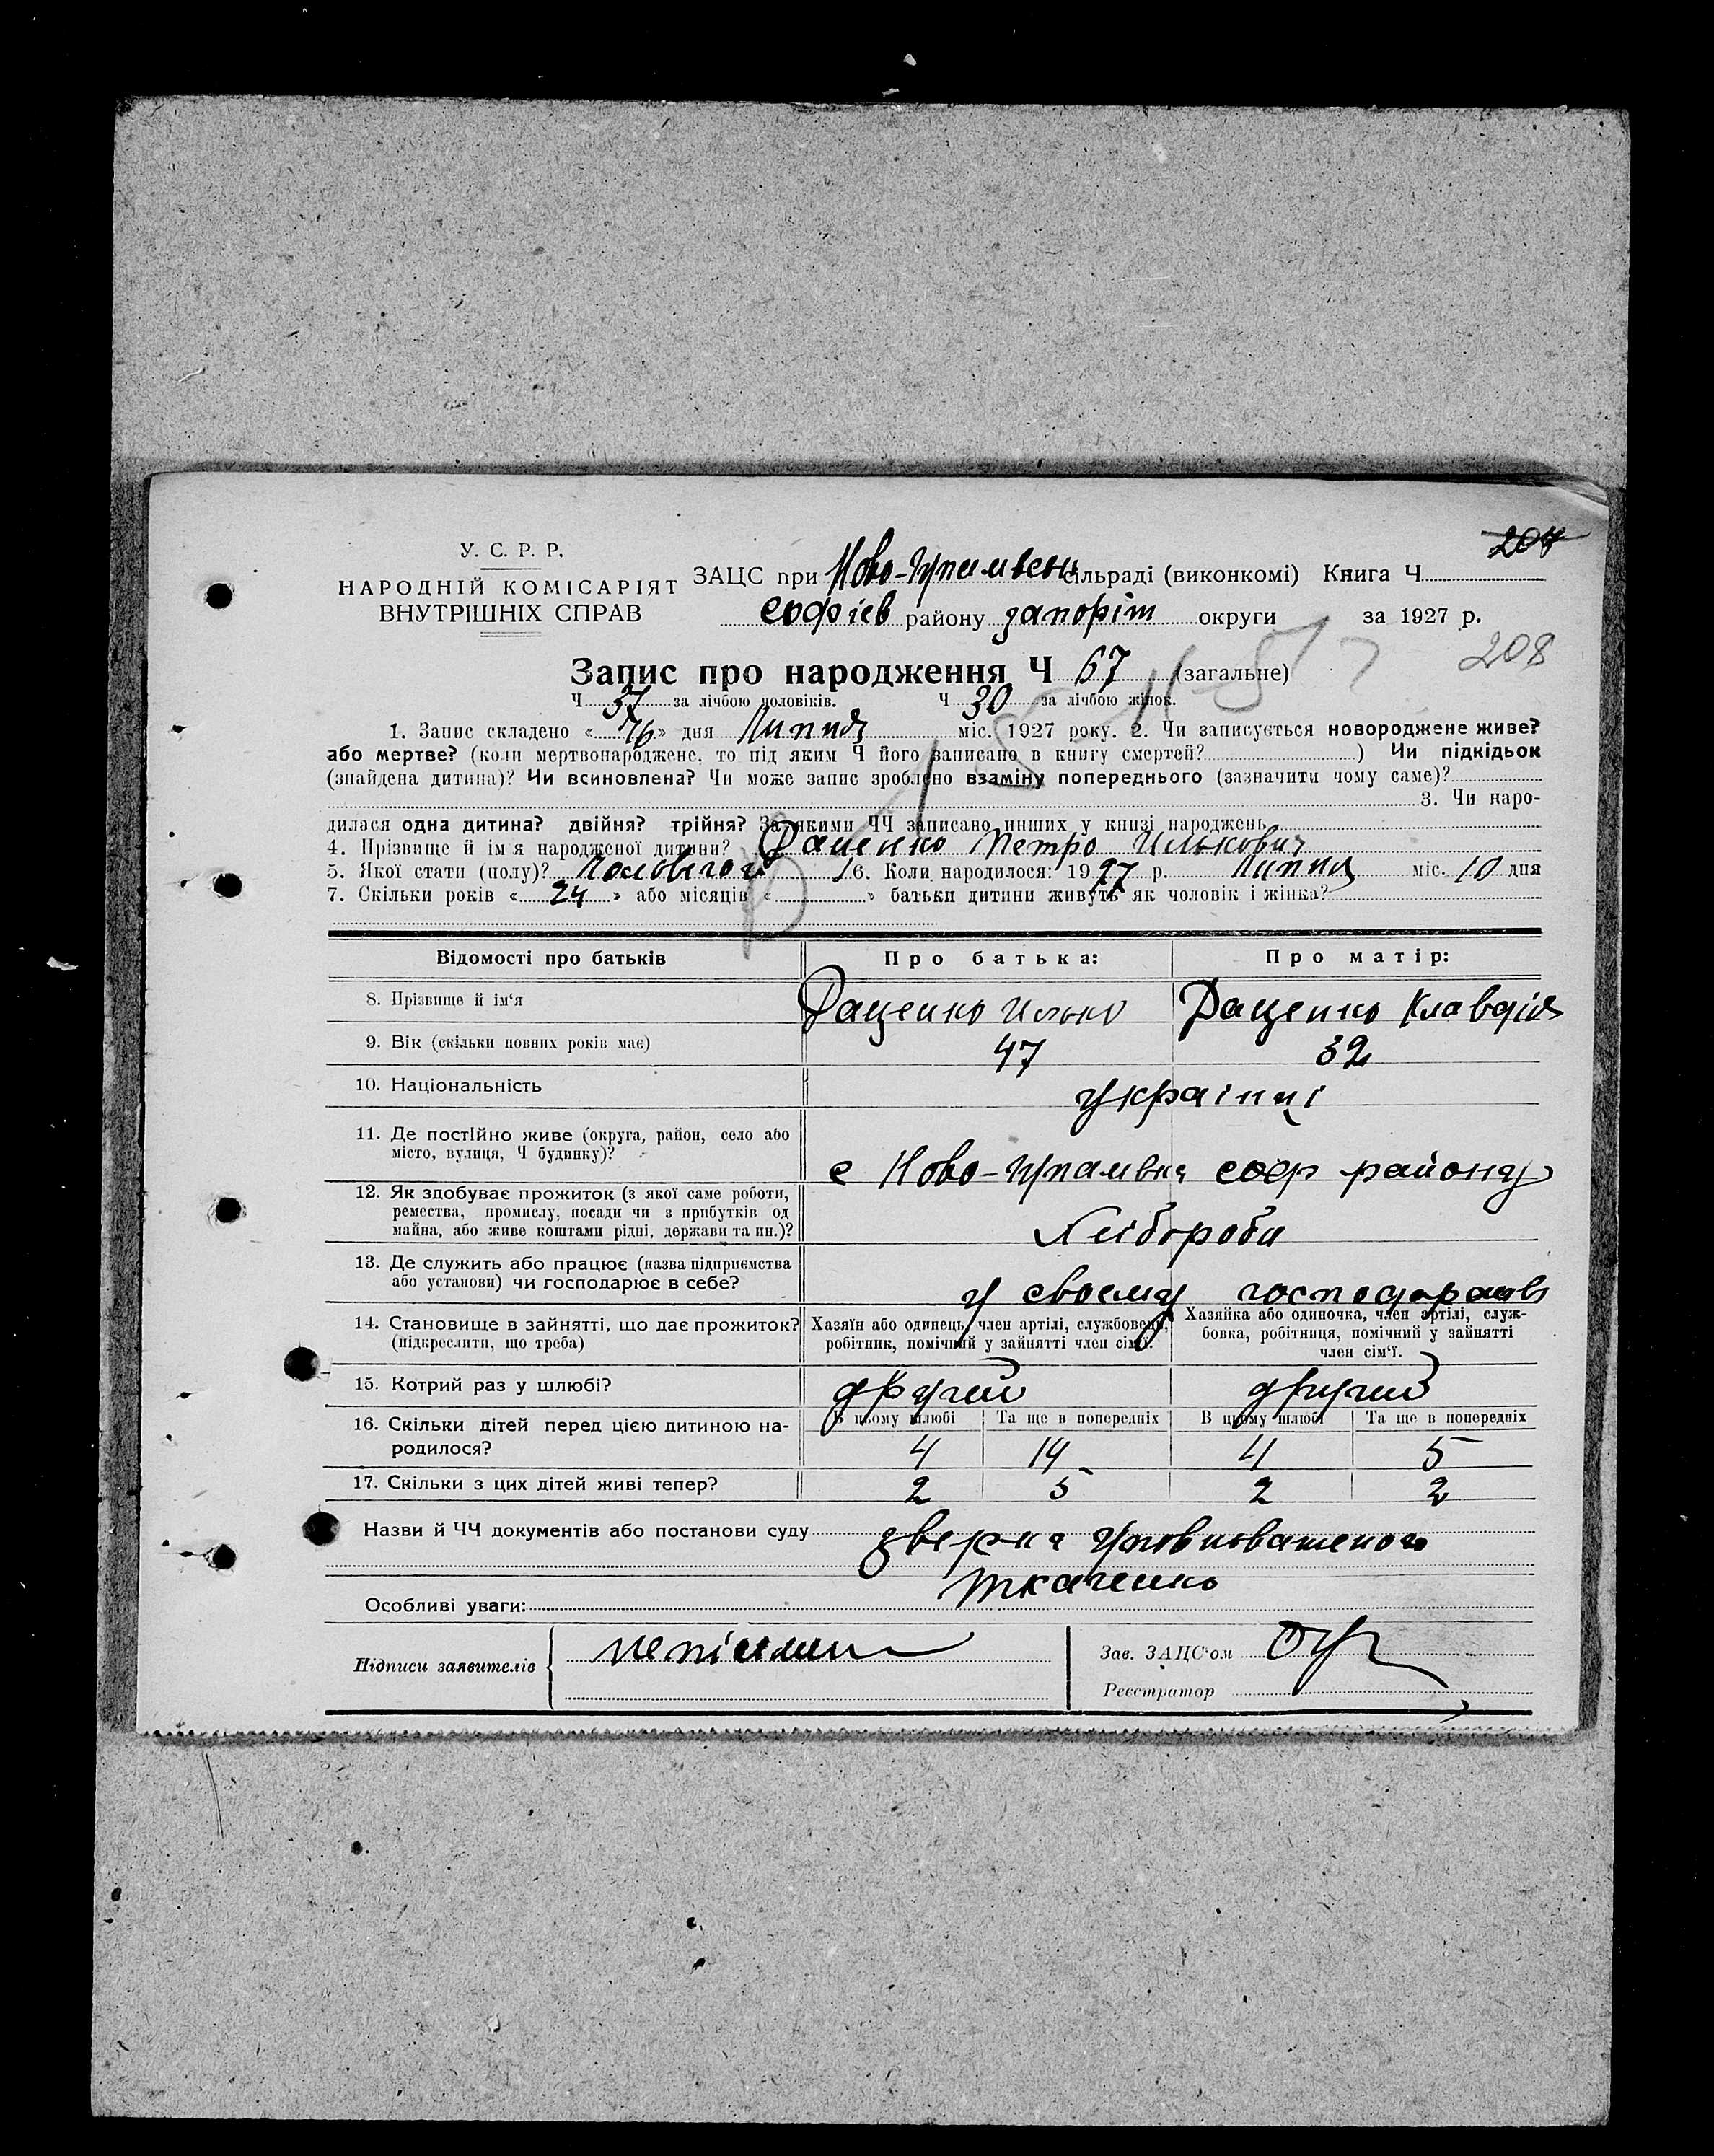 204
У. С. Р. Р.
НАРОДНІЙ КОМІСАРІЯТ
ВНУТРІШНІХ СПРАВ
ЗАЦС при сільраді (виконкомі) Книга Ч
Софіев району запоріж округи за 1927 р.
208
Запис про народження Ч 67 (загальне)
Ч 37 за лічбою чоловіків. Ч 30 за лічбою жінок.
1. Запис складено «16» дня Липня міс. 1927 року. 2. Чи записується новороджене живе?
або мертве? (коли мертвонароджене, то під яким Ч його записано в книгу смертей? ) Чи підкідьок
(знайдена дитина)? Чи всиновлена? Чи може запис зроблено взаміну попереднього (зазначити чому саме)?
3. Чи наро-
дилася одна дитина? двійня? трійня? За якими ЧЧ записано инших у книзі народжень
4. Прізвище й ім'я народженої дитини? Даценко Петро Илькович
5. Якої стати (полу)? 6. Коли народилося: 1927 р. Липня міс. 10 дня
7. Скільки років «24» або місяців « » батьки дитини живуть як чоловік і жінка?
Відомості про батьків Про батька: Про матір:
8. Прізвище й ім'я Даценко Илько Даценко Клавдія
9. Вік (скільки повних років має) 47 32
10. Національність українці
11. Де постійно живе (округа, район, село або
місто, вулиця, Ч будинку)?
с Ново- соф району
12. Як здобуває прожиток (з якої саме роботи,
ремества, промислу, посади чи з прибутків од
майна, або живе коштами рідні, держави та ин.)?
Хлібороби
13. Де служить або працює (назва підприємства
або установи) чи господарює в себе?
у своєму господарстві
14. Становище в зайнятті, що дає прожиток?
(підкреслити, що треба)
Хазяїн або одинець, член артілі, службовець,
робітник, помічний у зайнятті член сім'ї.
Хазяйка або одиночка, член артілі, служ-
бовка, робітниця, помічний у зайнятті
член сім'ї.
15. Котрий раз у шлюбі? другий другий
16. Скільки дітей перед цією дитиною на-
родилося?
В цьому шлюбі Та ще в попередніх В цьому шлюбі Та ще в попередніх
4 14 4 5
17. Скільки з цих дітей живі тепер? 2 5 2 2
Назви й ЧЧ документів або постанови суду
Ткаченко
Особливі уваги:
Підписи заявителів
Зав. ЗАЦС'ом
Реєстратор